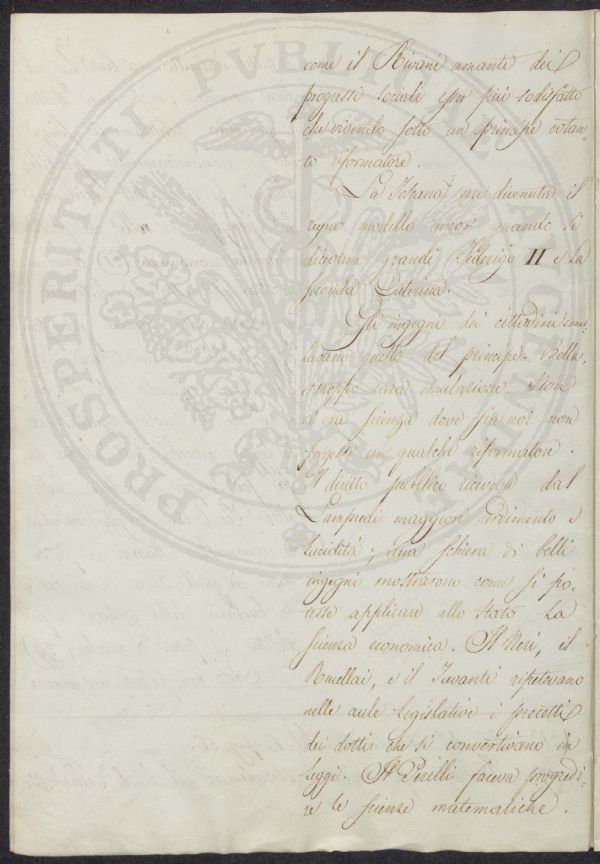 come il Rivani amante dei
progressi sociali esser più sodisfatto
che vivendo sotto un principe cotan-
to riformatore.
La Toscana era divenuta il
regno modello ancor quando si
dicevano grandi Federigo II e la
seconda Caterina.
Gli ingegni dei cittadini emu-
lavano quello del principe. Bella,
e troppo rara emulazione. Non
vi era scienza dove fra noi non
sorgesse un qualche riformatore.
Il diritto pubblico riceveva dal
Lampredi maggiore ardimento e
lucidità; una schiera di belli
ingegni mostrarono come si po-
tesse applicare allo stato la
scienza economica. Il Neri, il
Rucellai, e il Tavanti ripetevano
nelle aule legislative i precetti
dei dotti che si convertivano in
leggi. Il Perelli faceva progredi-
re le scienze matematiche.
PROSPERITATI PVBLICAE AVGENDAE